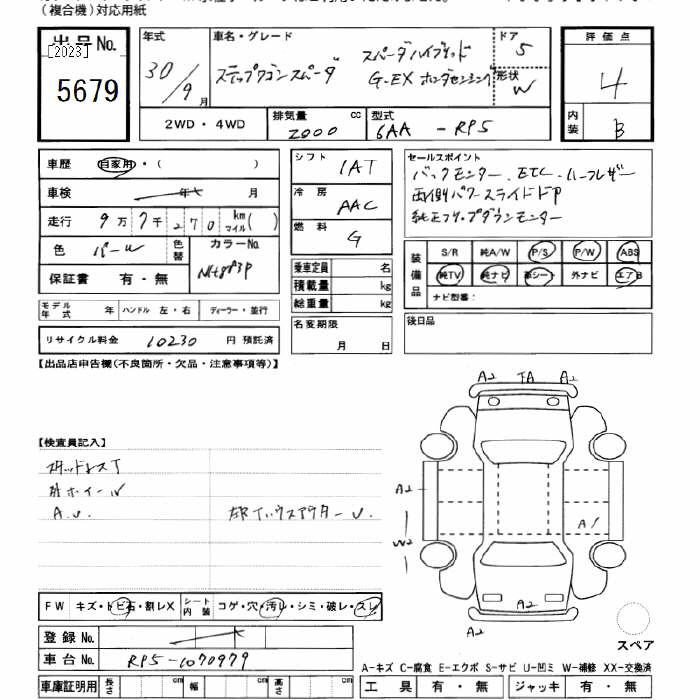 (複合機)対応用紙
出品No.
[2023]
5679
年式
30/9月
車名・グレード
ステップワゴンスパーダ
スパーダハイブリッド
G-EX ホンダセンシング
ドア
5
形状
W
評価点
4
内装
B
2WD・4WD
排気量
2000
cc
型式
6AA - RP5
車歴
自家用・( )
車検
年 月
走行
9万7千270
km
マイル( )
色
パール
色替
カラーNo.
NH883P
保証書 有・無
シフト
IAT
冷房
AAC
燃料
G
乗車定員 名
積載量 kg
総重量 kg
セールスポイント
バックモニター、ETC、ハーフレザー
両側パワースライドドア
純正フリップダウンモニター
装備品
S/R 純A/W P/S P/W ABS
純TV 純ナビ 革シート 外ナビ エアB
ナビ型番:
モデル年式 年 ハンドル 左・右 ディーラー・並行
リサイクル料金 10230 円 預託済
名変期限
月 日
後日品
【出品店申告欄(不良箇所・欠品・注意事項等)】
A2 TA A2
【検査員記入】
スタッドレスT
社外ホイール
A.U.
A2
W2
A1
A2
A2
FW キズ・トビ石・割レX
シート内装 コゲ・穴・汚レ・シミ・破レ・スレ
登録No.
車台No.
RP5-1070979
スペア
A-キズ C-腐食 E-エクボ S-サビ U-凹ミ W-補修 XX-交換済
車庫証明用 長さ cm 幅 cm 高さ cm
工具 有・無 ジャッキ 有・無